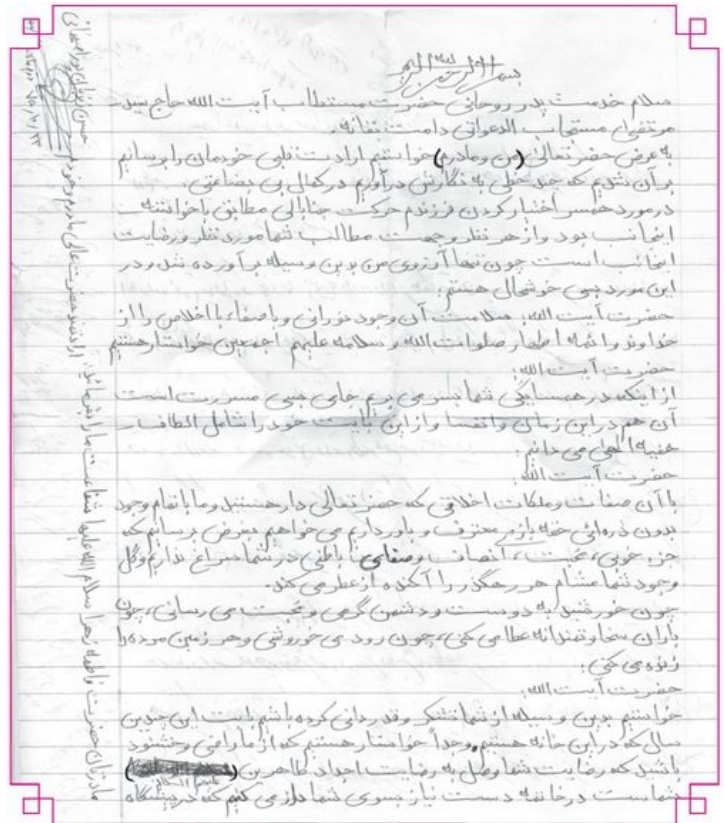 بسم الله الرحمن الرحیم
سلام خدمت پدر روحانی حضرت مستطاب آیت الله حاج سید
مرتضی مستجاب الدعواتی دامت بقائه.
به عرض حضرتعالی (من و مادرم) خواستیم ارادت قلبی خودمان را برسانیم
بر آن شدیم که چند خطی به نگارش درآوریم در کمال بی بضاعتی.
در مورد همسر اختیار کردن فرزندم حرکت جنابالی مطابق با خواسته
اینجانب بود و از هر نظر و جهت مطالب شما مورد نظر و رضایت
اینجانب است چون تنها آرزوی من بدین وسیله برآورده شد و در
این مورد بسی خوشحال هستم.
حضرت آیت الله: سلامت آن وجود نورانی و باصفا، با اخلاص را از
خداوند و ائمه اطهار صلوات الله و سلامه علیهم اجمعین خواستار هستیم
حضرت آیت الله:
از اینکه در همسایگی شما بسر می بریم جای بسی مسرت است
آن هم در این زمان وانفسا و از این بابت خود را شامل الطاف
خفیه الهی می دانم.
حضرت آیت الله:
با آن صفات و ملکات اخلاقی که حضرتعالی دار هستید و ما با تمام وجود
بدون ذره ائی معترف و باور داریم می خواهیم بعرض برسانیم که
جزء خوبی، محبت، انصاف و صفای باطنی در شما سراغ نداریم و گل
وجود شما مشام هر رهگذر را آکنده از عطر می کند.
چون خورشید به دوست و دشمن گرمی و محبت می رسانی، چون
باران سخاوتمندانه عطا می کنی، چون رود می خروشی و هر زمین مرده را
زنده می کنی؛
حضرت آیت الله:
خواستیم بدین وسیله از شما تشکر و قدردانی کرده باشیم بابت این چندین
سال که در این خانه هستیم و جداً خواستار هستیم که از ما راضی و خشنود
باشید که رضایت شما وصل به رضایت اجداد طاهرین
علیهم السلام
شماست در خاتمه دست نیاز بسوی شما دراز می کنیم که در پیشگاه
مادرتان حضرت فاطمه زهرا سلام الله علیها شفاعت ما را بفرمائید. ارادتمند حضرت عالی مادرم و خودم
حسن